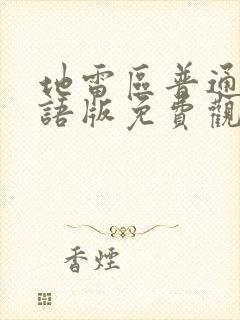 地雷區普通
語版免費觀
香煙